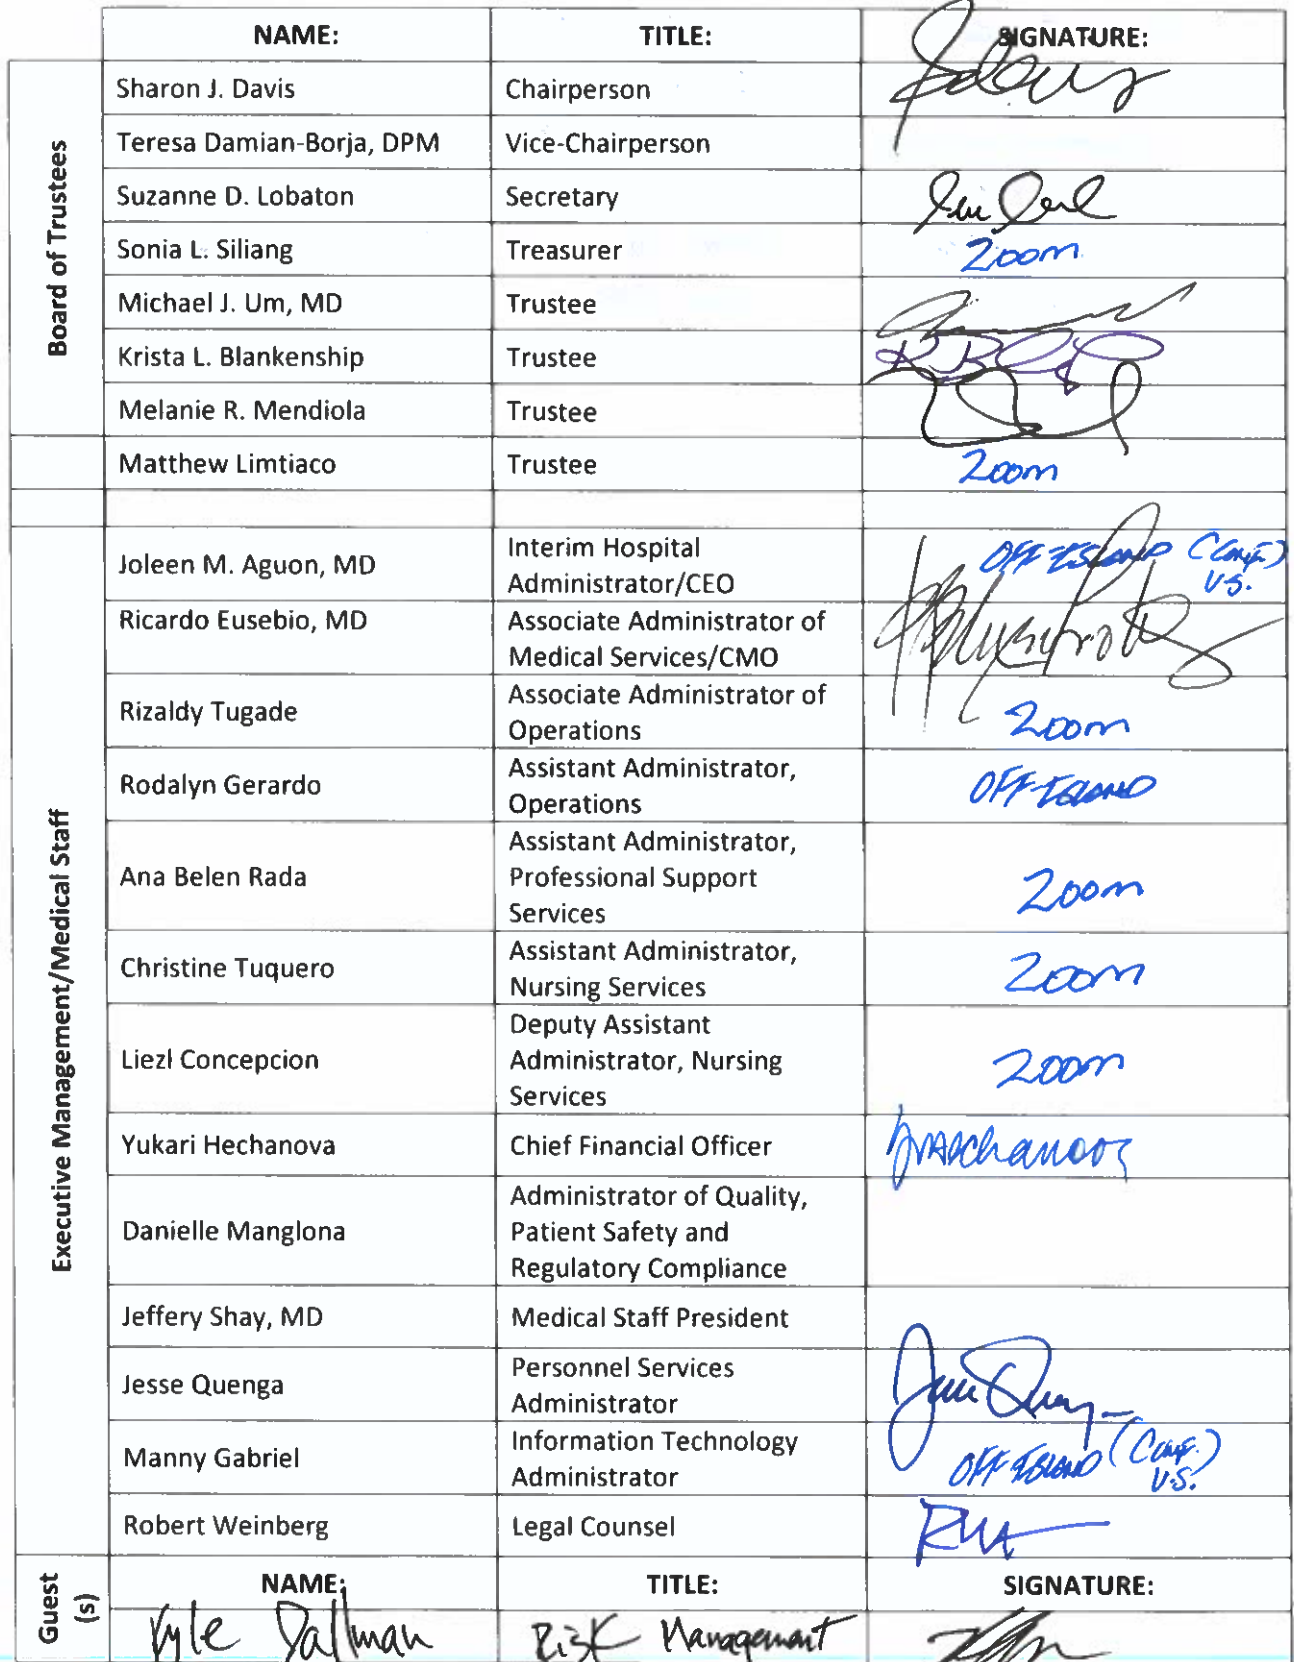 NAME: TITLE: SIGNATURE:
Board of Trustees
Sharon J. Davis Chairperson
Teresa Damian-Borja, DPM Vice-Chairperson
Suzanne D. Lobaton Secretary
Sonia L. Siliang Treasurer Zoom
Michael J. Um, MD Trustee
Krista L. Blankenship Trustee
Melanie R. Mendiola Trustee
Matthew Limtiaco Trustee Zoom
Executive Management/Medical Staff
Joleen M. Aguon, MD Interim Hospital OFF-ISLAND (Conf.)
Administrator/CEO U.S.
Ricardo Eusebio, MD Associate Administrator of
Medical Services/CMO
Rizaldy Tugade Associate Administrator of
Operations Zoom
Rodalyn Gerardo Assistant Administrator, OFF-ISLAND
Operations
Ana Belen Rada Assistant Administrator,
Professional Support Zoom
Services
Christine Tuquero Assistant Administrator, Zoom
Nursing Services
Liezl Concepcion Deputy Assistant
Administrator, Nursing Zoom
Services
Yukari Hechanova Chief Financial Officer
Danielle Manglona Administrator of Quality,
Patient Safety and
Regulatory Compliance
Jeffery Shay, MD Medical Staff President
Jesse Quenga Personnel Services
Administrator
Manny Gabriel Information Technology OFF-ISLAND (Conf.)
Administrator U.S.
Robert Weinberg Legal Counsel
Guest
(s)
NAME: TITLE: SIGNATURE:
Kyle Dallman Risk Management